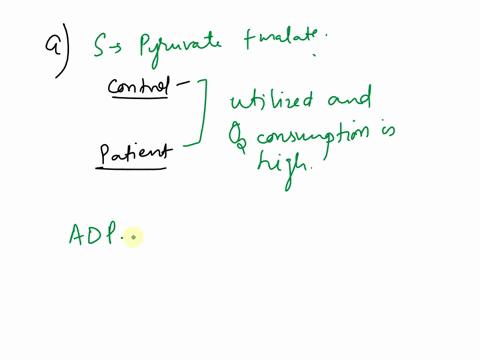 a) S→ Pyruvate + malate.
Control -
utilized and
O2 consumption is
high.
Patient
ADP.